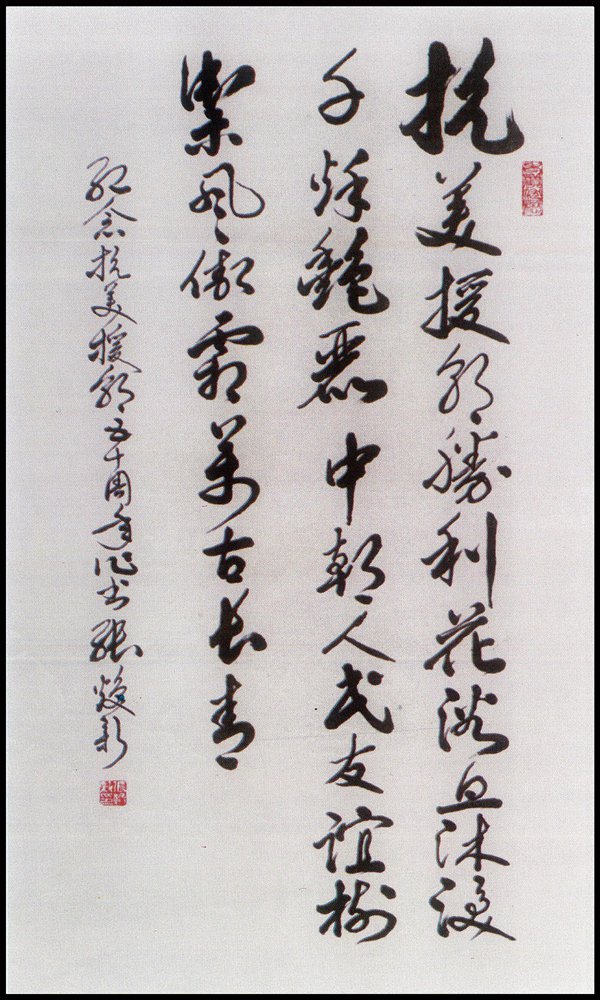 抗美援朝勝利花浴血沐浸
千秋艷麗中朝人民友誼樹
禦風傲霜萬古長青
紀念抗美援朝五十周年作書張新